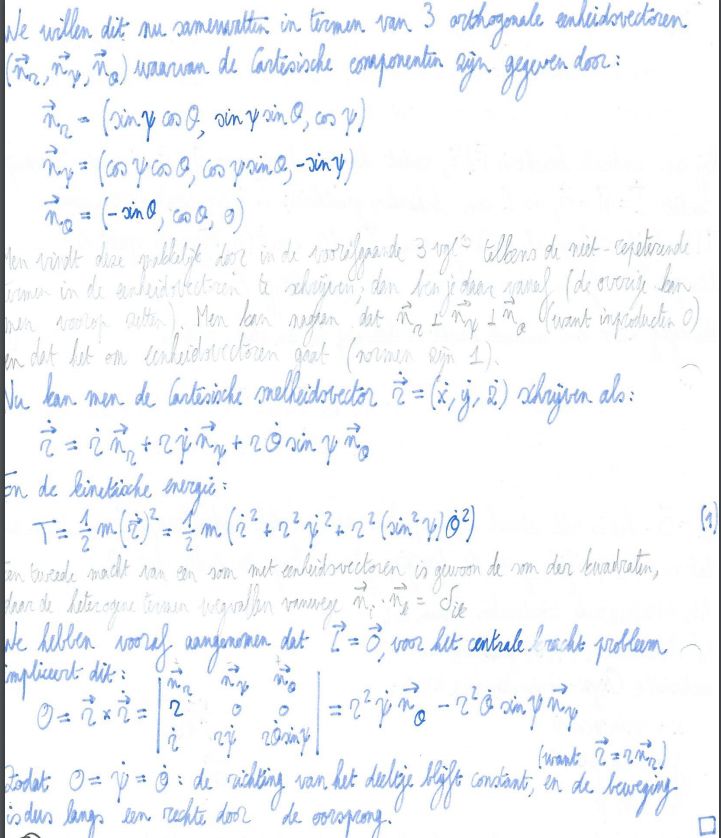 We willen dit nu samenvatten in termen van 3 orthogonale eenheidsvectoren
(n⃗_r, n⃗_ψ, n⃗_θ) waarvan de Cartesische componenten zijn gegeven door:
n⃗_r = (sin ψ cos θ, sin ψ sin θ, cos ψ)
n⃗_ψ = (cos ψ cos θ, cos ψ sin θ, -sin ψ)
n⃗_θ = (-sin θ, cos θ, 0)
Men vindt deze makkelijk door in de voorafgaande 3 vglⁿ telkens de niet-repeterende
termen in de eenheidsvectoren te schrijven, dan ben je daar vanaf (de overige kan
men voorop zetten). Men kan nagaan dat n⃗_r ⊥ n⃗_ψ ⊥ n⃗_θ (want inproducten 0)
en dat het om eenheidsvectoren gaat (normen zijn 1).
Nu kan men de Cartesische snelheidsvector ṙ⃗ = (ẋ, ẏ, ż) schrijven als:
ṙ⃗ = ṙ n⃗_r + r ψ̇ n⃗_ψ + r θ̇ sin ψ n⃗_θ
En de kinetische energie:
T = 1/2 m (ṙ⃗)² = 1/2 m (ṙ² + r² ψ̇² + r² (sin² ψ) θ̇²) (1)
een tweede macht van een som met eenheidsvectoren is gewoon de som der kwadraten,
daar de heterogene termen wegvallen vanwege n⃗_i · n⃗_k = δ_ik
We hebben vooraf aangenomen dat L⃗ = 0⃗, voor het centrale kracht probleem
impliceert dit:
0 = r⃗ × ṙ⃗ = | n⃗_r n⃗_ψ n⃗_θ ; r 0 0 ; ṙ rψ̇ rθ̇ sin ψ | = r² ψ̇ n⃗_θ - r² θ̇ sin ψ n⃗_ψ
(want r⃗ = r n⃗_r)
Zodat 0 = ψ̇ = θ̇ : de richting van het deeltje blijft constant, en de beweging
is dus langs een rechte door de oorsprong. □